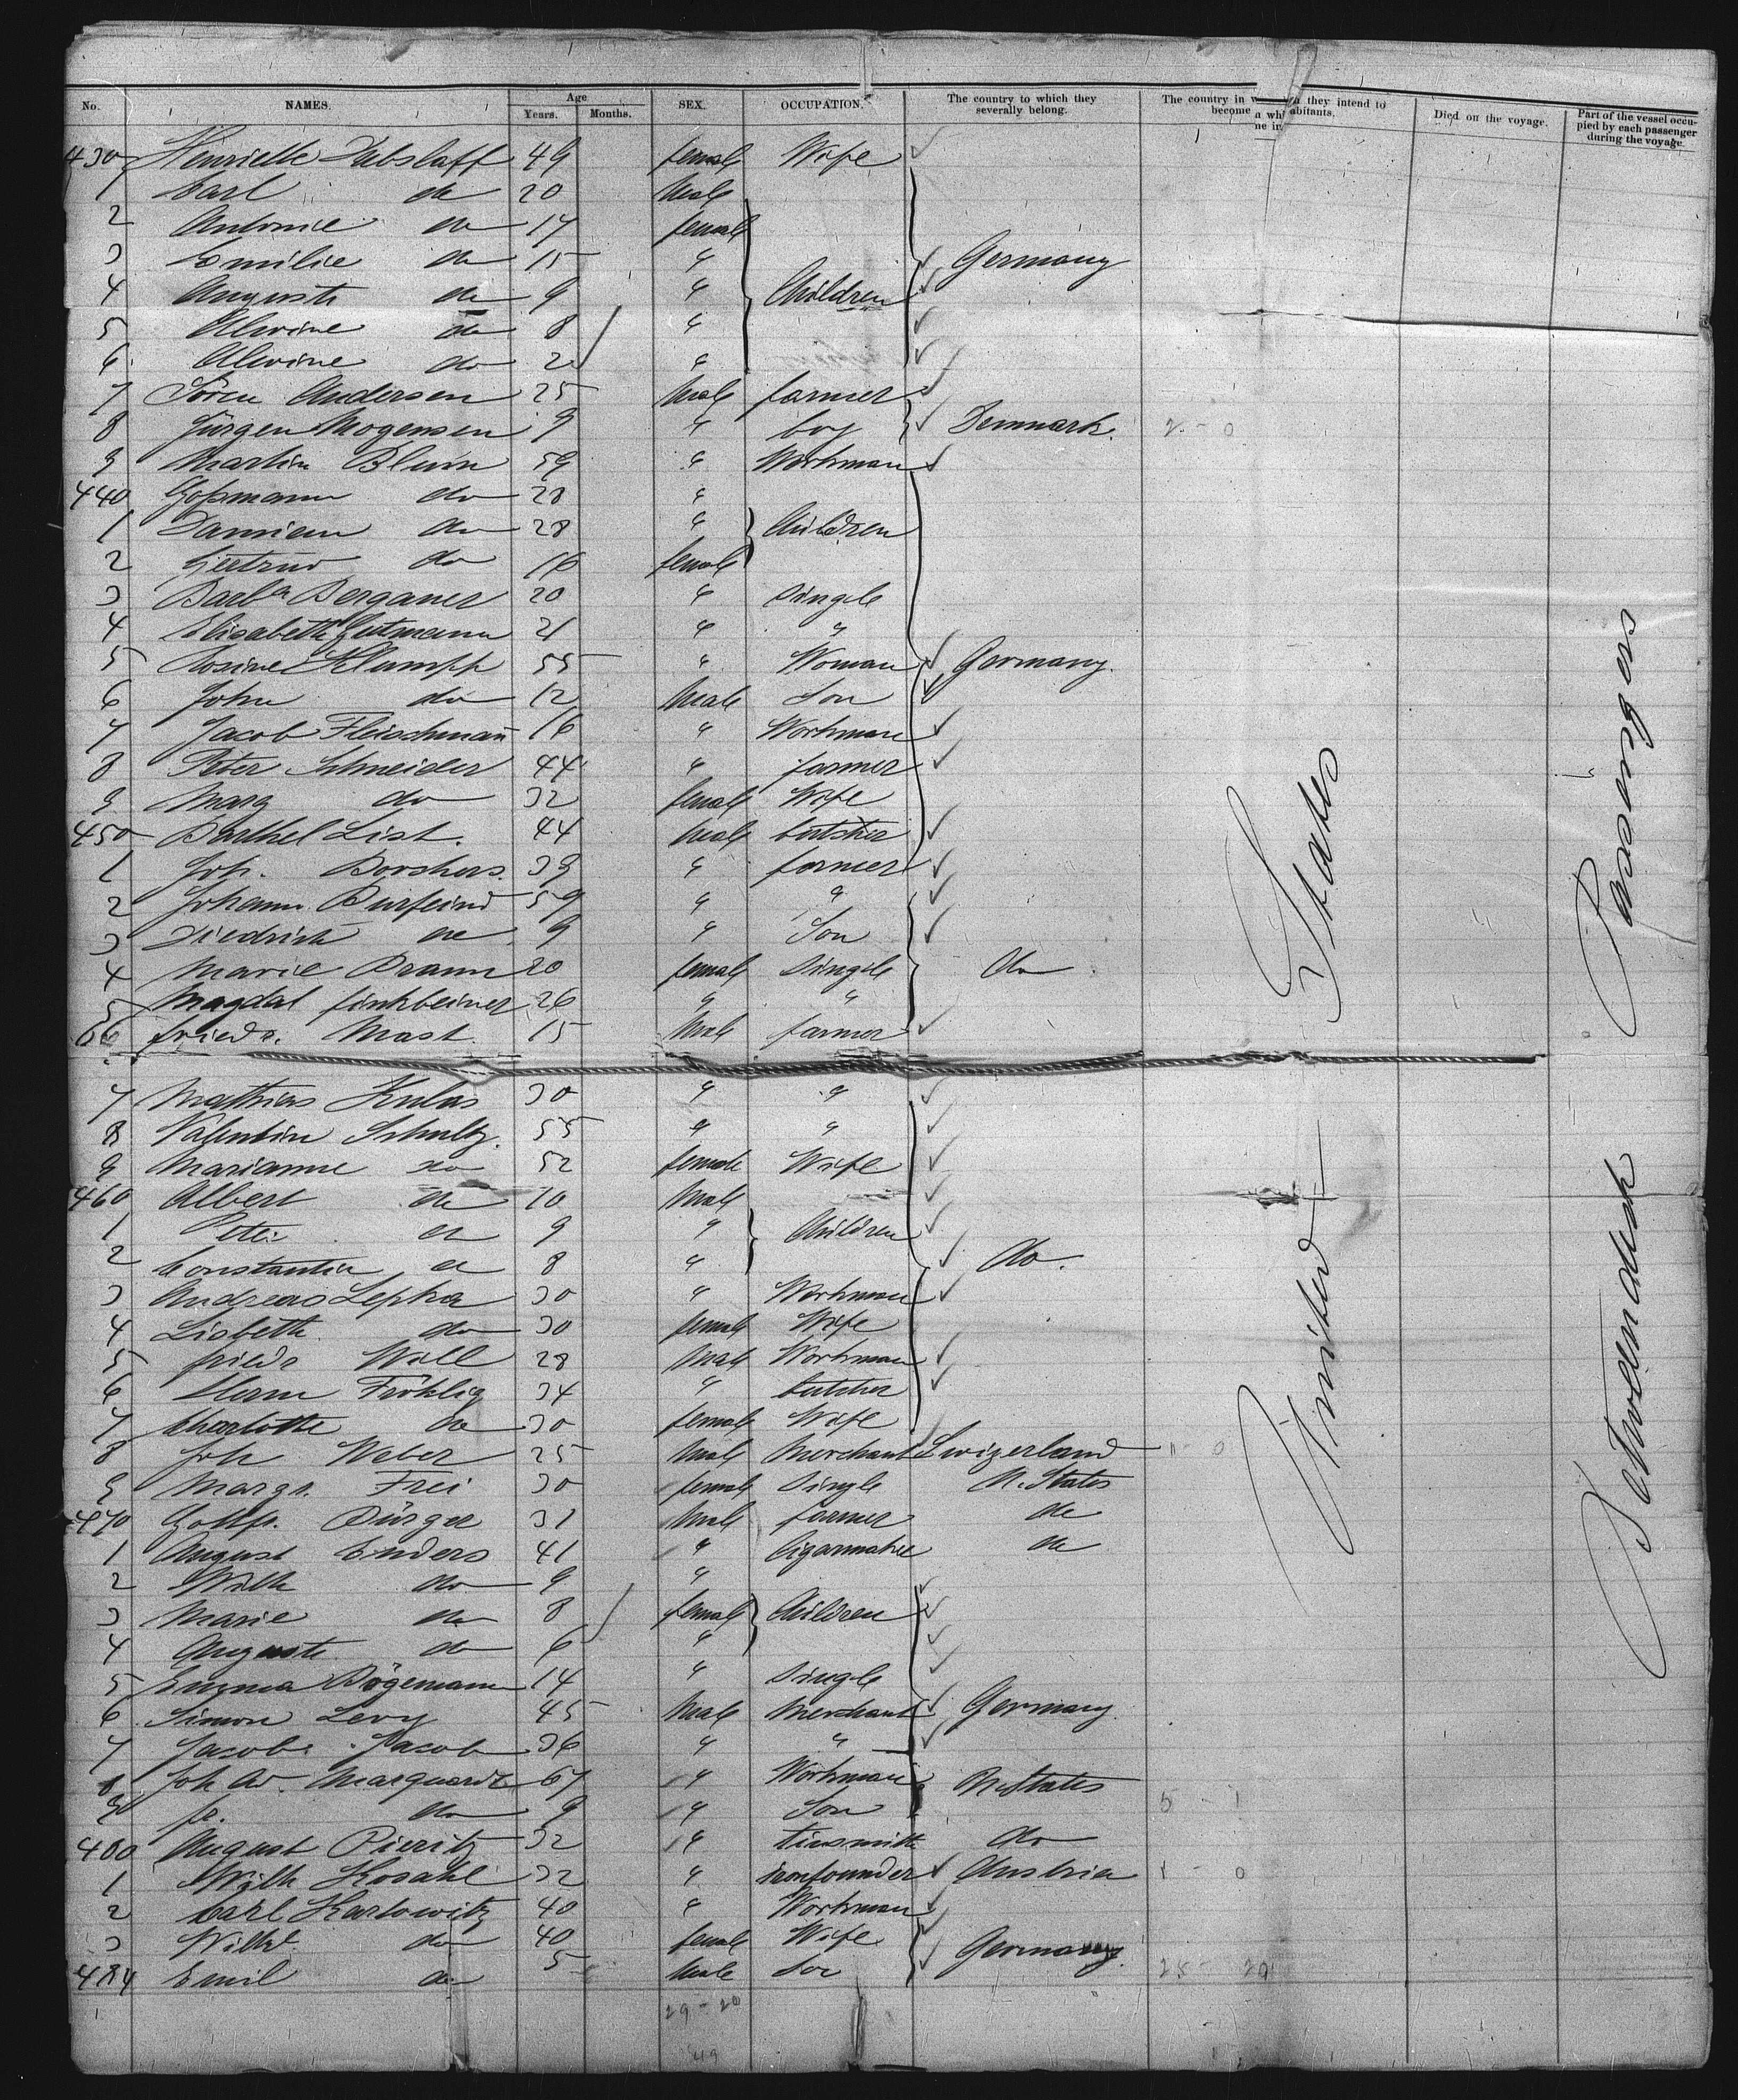 No. NAMES. Age Years. Months. SEX. OCCUPATION. The country to which they severally belong. The country in they intend to become abitants. Died on the voyage. Part of the vessel occupied by each passenger during the voyage.
430 Henriette 49 female Wife
1 Carl do 20 Male
2 Antonie do 17 female
3 Emilie do 15 " Germany
4 Auguste do 9 " Children
5 Alwine do 8 "
6 Alwine do 2 "
7 Sören Andersen 25 Male farmer
8 Jürgen Mogensen 9 " boy Denmark. 2 - 0
9 Martin Blum 59 " Workman
440 Goßmann do 28 "
1 Damian do 28 " Children
2 Gertrud do 16 female
3 Barba Berganer 20 " Single
4 Elisabeth Gutmann 21 " "
5 Rosine Klumpp 55 " Woman Germany.
6 John do 12 Male Son
7 Jacob Fleischmann 16 " Workman
8 Peter Schneider 44 " farmer
9 Marg do 32 female Wife
450 Barthel List. 44 Male butcher
1 Joh. Borchers. 39 " farmer
2 Johann Burfeind 59 " "
3 Diedrich do 9 " Son
4 Marie Braun 20 female Single do
5 Magdal finkbeiner 26 " "
6 friedr. Mast. 15 Male farmer
7 Mathias Kulas 30 " "
8 Valentin Schultz. 55 " "
9 Marianne do 52 female Wife
460 Albert do 10 Male
1 Peter do 9 " Children
2 Constantin do 8 " do.
3 Andreas Lepka 30 " Workman
4 Lisbeth do 30 female Wife
5 friedr Will 28 Male Workman
6 Herm Fröhlig 34 " butcher
7 Charlotte do 30 female Wife
8 Joh Weber 25 Male Merchant Swizerland 1 - 0
9 Margr. Frei 30 female Single U. States
470 Gottfr. Bürger 31 Male farmer do
1 August Enders 41 " Cigarmaker do
2 Wilh do 9 "
3 Marie do 8 female Children
4 Auguste do 6 "
5 Emma Bögemann 14 " Single
6 Simon Levy 45 Male Merchant Germany.
7 Jacob Jacob 36 " "
8 Joh Marquardt 67 " Workman U. States
9 do 9 " Son 5 - 1
480 August Pieritz 32 " tinsmith do
1 Wilh Kosahl 32 " ironfounder Austria 1 - 0
2 Carl Karlowitz 40 " Workman
3 Wilhe do 40 female Wife Germany.
484 Emil do 5 Male Son 25 - 20
29 - 20
49
United States
Betweendeck Passengers